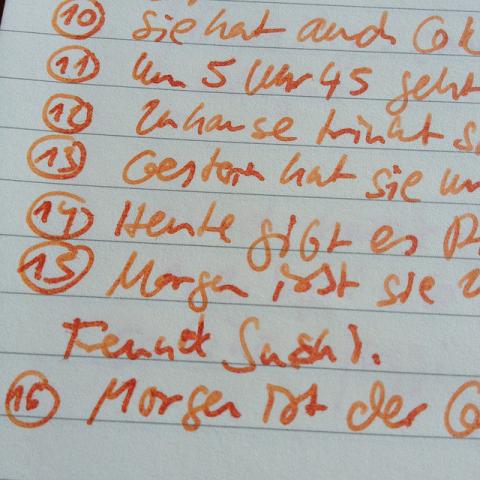 10 Sie hat auch
11 Um 5 Uhr 45 geht
12 Zuhause trinkt
13 Gestern hat sie
14 Heute gibt es
15 Morgen isst sie
Sushi.
16 Morgen ist der